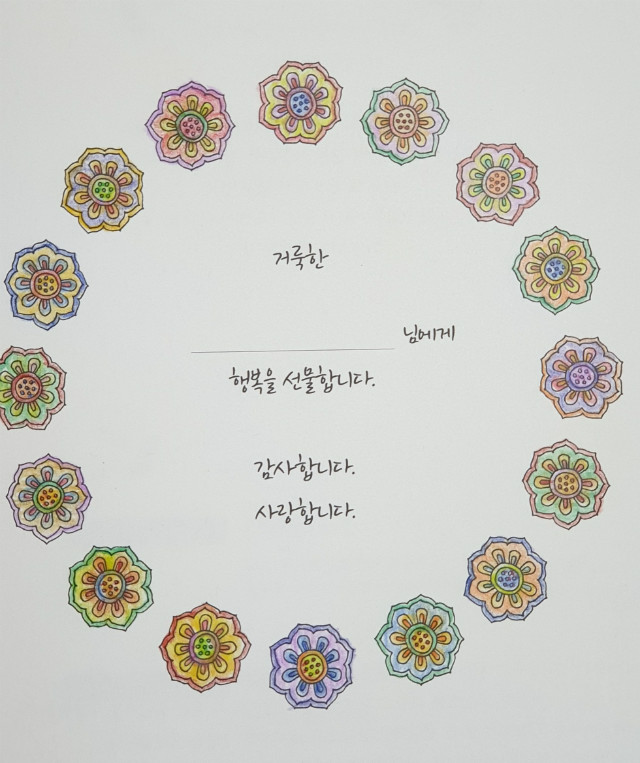 거룩한
님에게
행복을 선물합니다.
감사합니다.
사랑합니다.